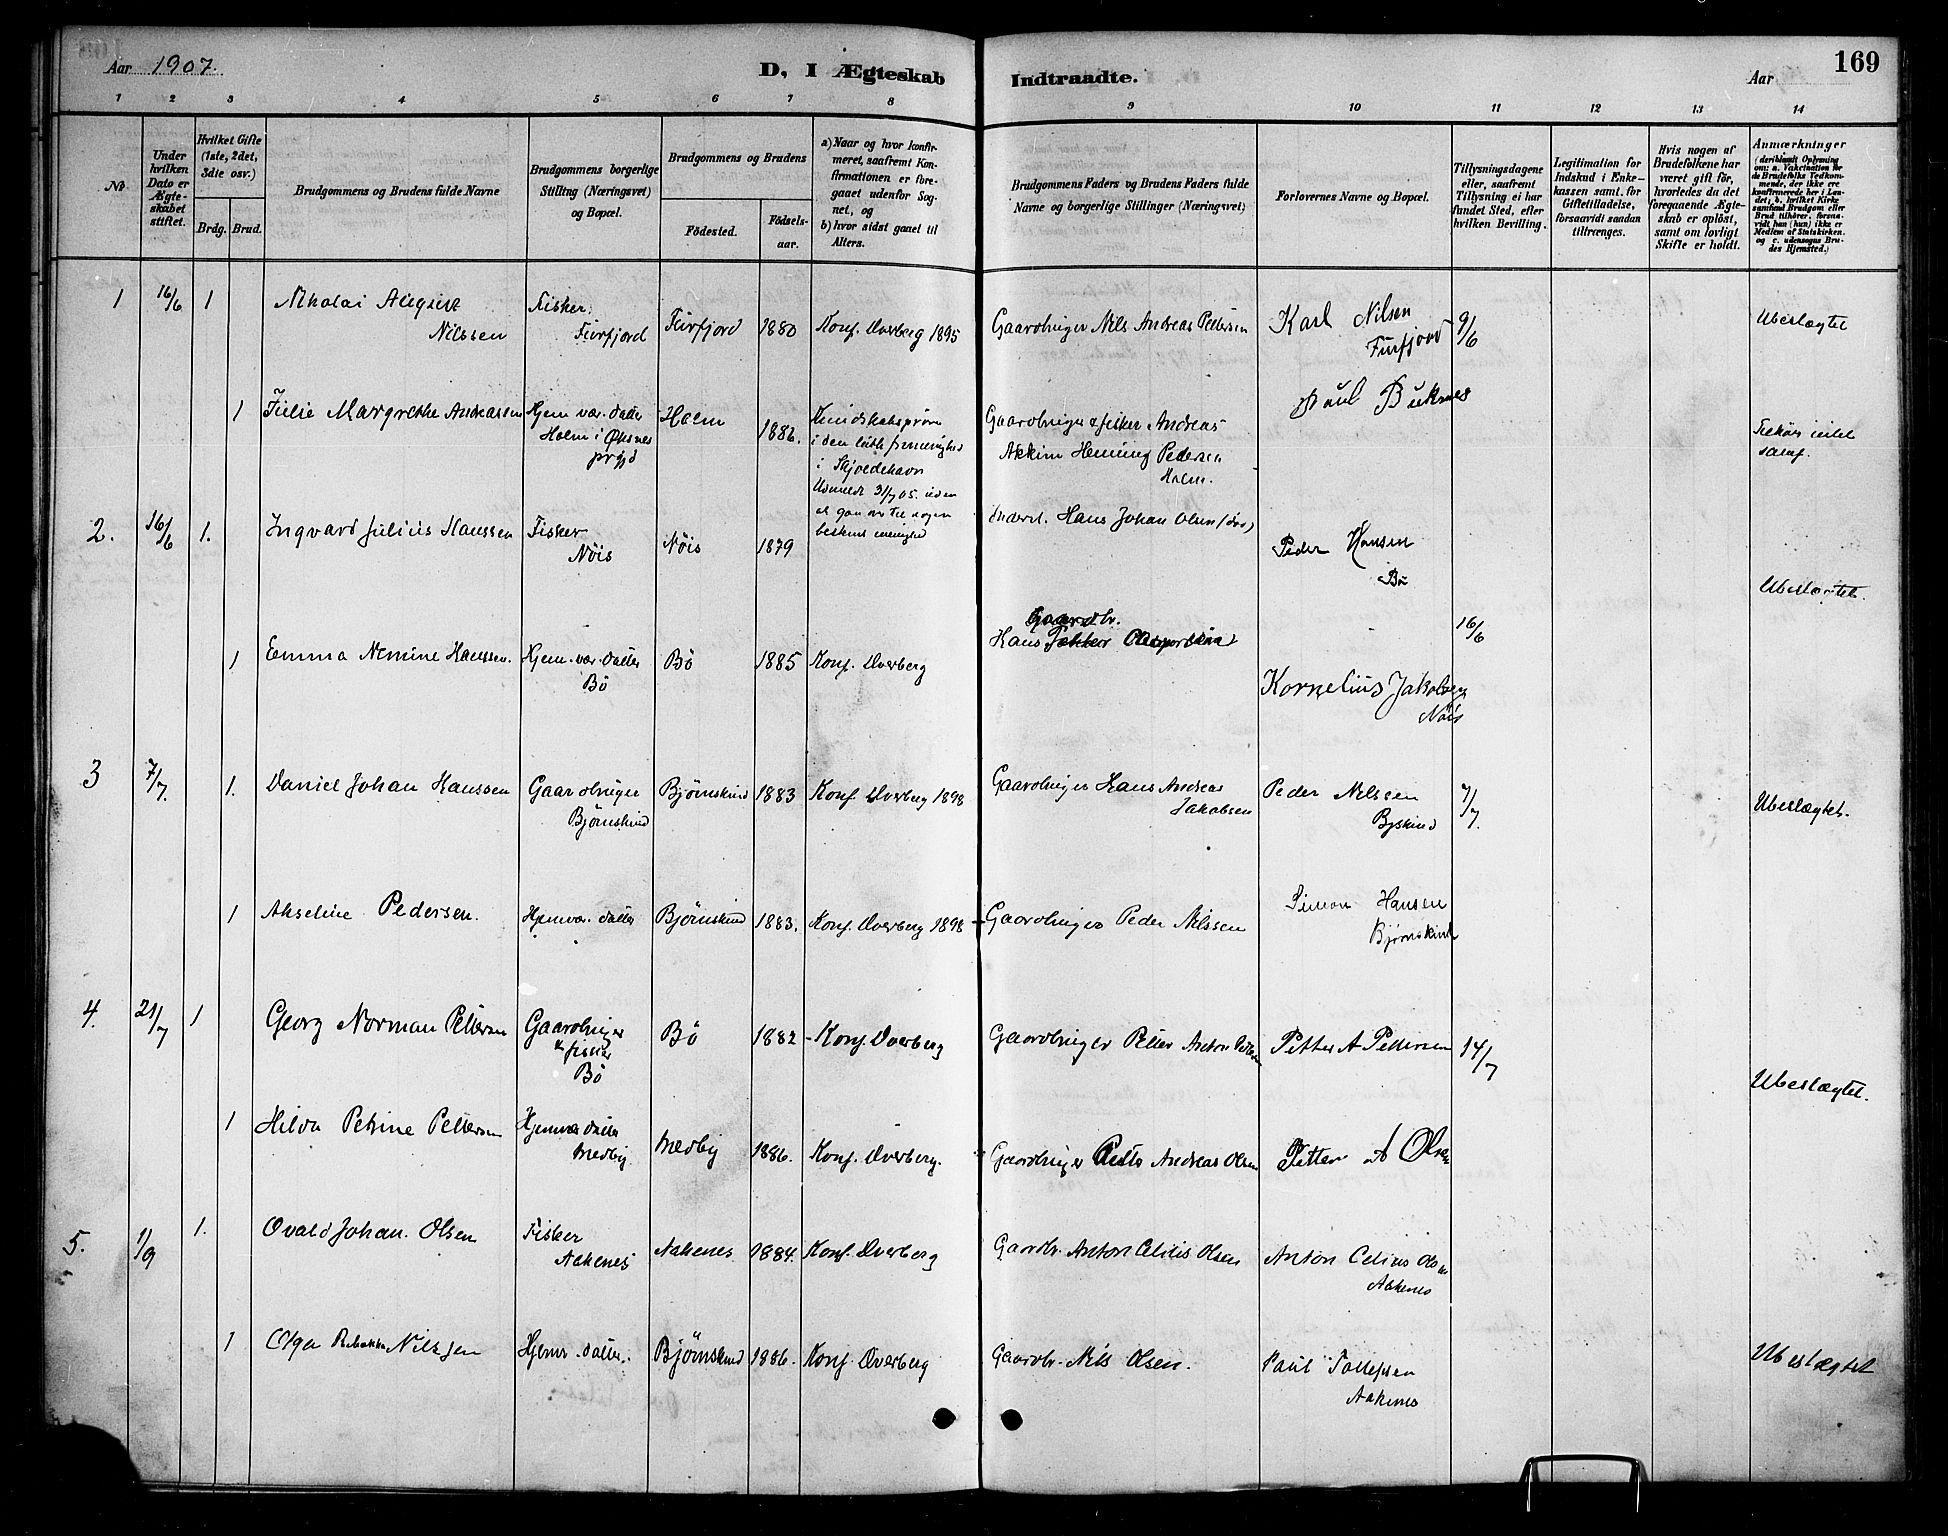 Aar 1907.
D, I Ægteskab Indtraadte.
Aar
169
1 2 3 4 5 6 7 8 9 10 11 12 13 14
No
Under hvilken Dato er Ægteskabet stiftet.
Hvilket Gifte (1ste, 2det, 3die osv.)
Brdg. Brud.
Brudgommens og Brudens fulde Navne
Brudgommens borgerlige Stilling (Næringsvei) og Bopæl.
Brudgommens og Brudens
Fødested.
Fødselsaar.
a) Naar og hvor konfirmeret, saafremt Konfirmationen er foregaaet udenfor Sognet, og
b) hvor sidst gaaet til Alters.
Brudgommens Faders og Brudens Faders fulde Navne og borgerlige Stillinger (Næringsvei)
Forlovernes Navne og Bopæl.
Tillysningsdagene eller, saafremt Tillysning ei har fundet Sted, efter hvilken Bevilling.
Legitimation for Indskud i Enkekassen samt. for Giftetilladelse, forsaavidt saadan tiltrænges.
Hvis nogen af Brudefolkene har været gift før, hvorledes da det foregaaende Ægteskab er opløst, samt om lovligt Skifte er holdt.
Anmærkninger
(deriblandt Oplysning om: a. Vakcination for de Brudefolks Vedkommende, der ikke ere konfirmerede her i Landet; b. hvilket Kirkesamfund Brudgom eller Brud tilhører, forsaavidt han (hun) ikke er Medlem af Statskirken, og c. udensogns Brudes Hjemsted.)
1 16/6 1 Nikolai August Nilssen Fisker, Furfjord Furfjord 1880 Konf. Dverberg 1895 Gaardbruger Nils Andreas Pettersen Karl Nilsen Furfjord 9/6 Ubeslægtet
1 Julie Margrethe Andreassen Hjem. vær. datter Holm i Øksnes prgjd Holm 1882. Kundskabsprøve i den luth. frimenighed i Skjoldehavn Udmeldt 31/7 05. uden at gaa over til nogen bestemt menighed Gaardbruger & fisker Andreas Akkim Henning Pedersen Holm. Paul Buknes
2. 16/6 1. Ingvard Julius Hanssen Fisker Nöis Nöis 1879 Hans Johan Olsen Peder Hansen Bö Ubeslægtet.
1 Emma Nemine Hanssen. Hjem. vær. datter Bö Bö 1885 Konf. Dverberg Gaardbr. Hans 16/6 Kornelius Jakobsen Nöis
3 7/7. 1. Daniel Johan Hanssen Gaardbruger Bjørnskind Bjørnskind 1883 Konf. Dverberg 1898 Gaardbruger Hans Andreas Jakobsen Peder Nilssen Bjskind 7/7. Ubeslægtet.
1 Akseline Pedersen. Hjemvær. datter Bjørnskind 1883. Konf. Dverberg 1898 Gaardbruger Peder Nilssen Simon Hansen Bjørnskind
4. 21/7 1 Georg Norman Pettersen Gaardbruger & fisker Bö Bö 1882 Konf. Dverberg Gaardbruger Petter Anton Pettersen Petter A Pettersen 14/7 Ubeslægtet.
1 Hilda Petrine Pettersen Hjemvær datter Medby Medby 1886. Konf. Dverberg. Gaardbruger Petter Andreas Olsen Petter A Olsen
5. 1/9 1. Ovald Johan. Olsen Fisker Aakenes Aakenes 1884. Konf. Dverberg Gaardbr. Anton Celius Olsen Anton Celius Olsen Aakenes
1 Olga Rebekka Nilssen Hjemv. datter. Bjørnskind 1886. Konf. Dverberg Gaardbr. Nils Olsen. Paul Tollefsen Aakenes Ubeslægtet